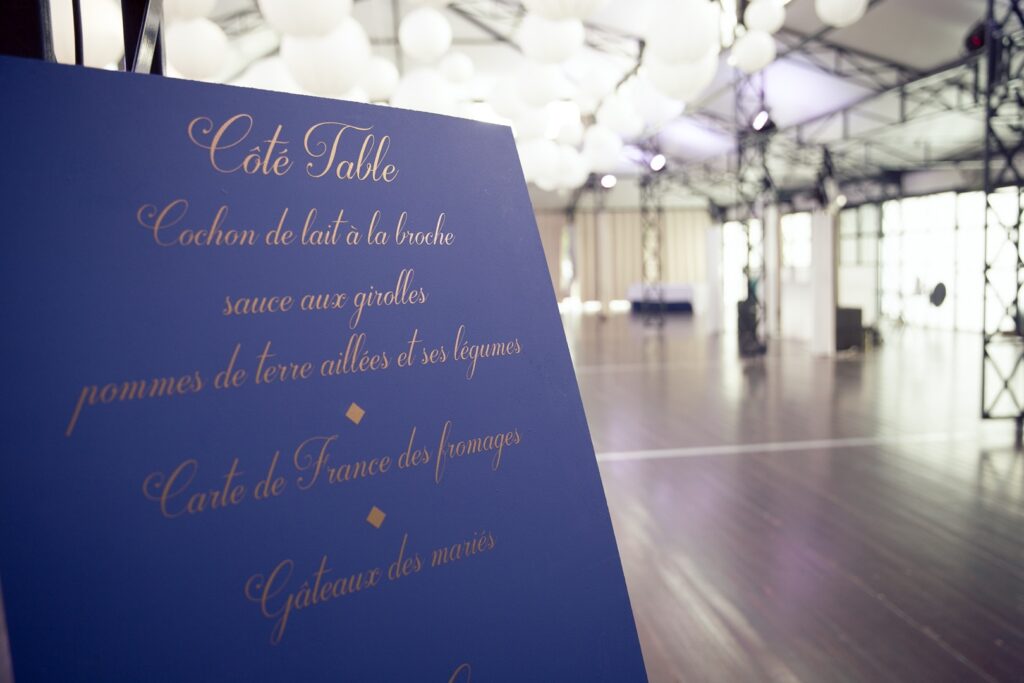 Côté Table
Cochon de lait à la broche
sauce aux girolles
pommes de terre aillées et ses légumes
Carte de France des fromages
Gâteaux des mariés